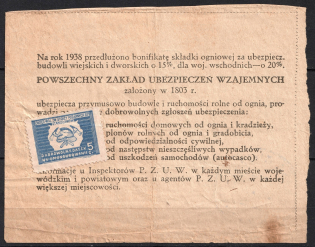 Na rok 1938 przedłużono bonifikatę składki ogniowej za ubezpiecz.
budowli wiejskich i dworskich o 15%, dla woj. wschodnich—o 20%.
POWSZECHNY ZAKŁAD UBEZPIECZEŃ WZAJEMNYCH
założony w 1803 r.
ubezpiecza przymusowo budowle i ruchomości rolne od ognia, pro-
wadzi dobrowolnych zgłoszeń ubezpieczenia:
ruchomości domowych od ognia i kradzieży,
ziempionów rolnych od ognia i gradobicia,
od odpowiedzialności cywilnej,
od następstw nieszczęśliwych wypadków,
od uszkodzeń samochodów (autocasco).
Informacje u Inspektorów P. Z. U. W. w każdym mieście woje-
wódzkim i powiatowym oraz u agentów P. Z. U. W. w każdej
większej miejscowości.
5